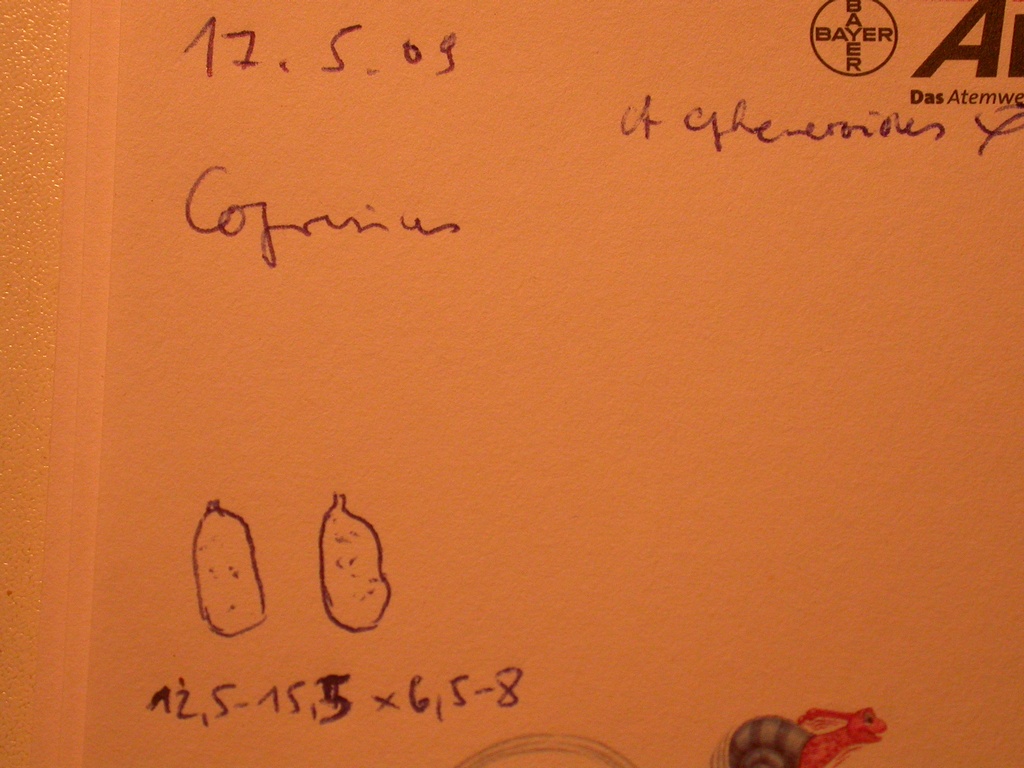 17.5.09
BAYER
BAYER
Das Atemwe
cf ephemeroides
Coprinus
12,5-15,5 x 6,5-8